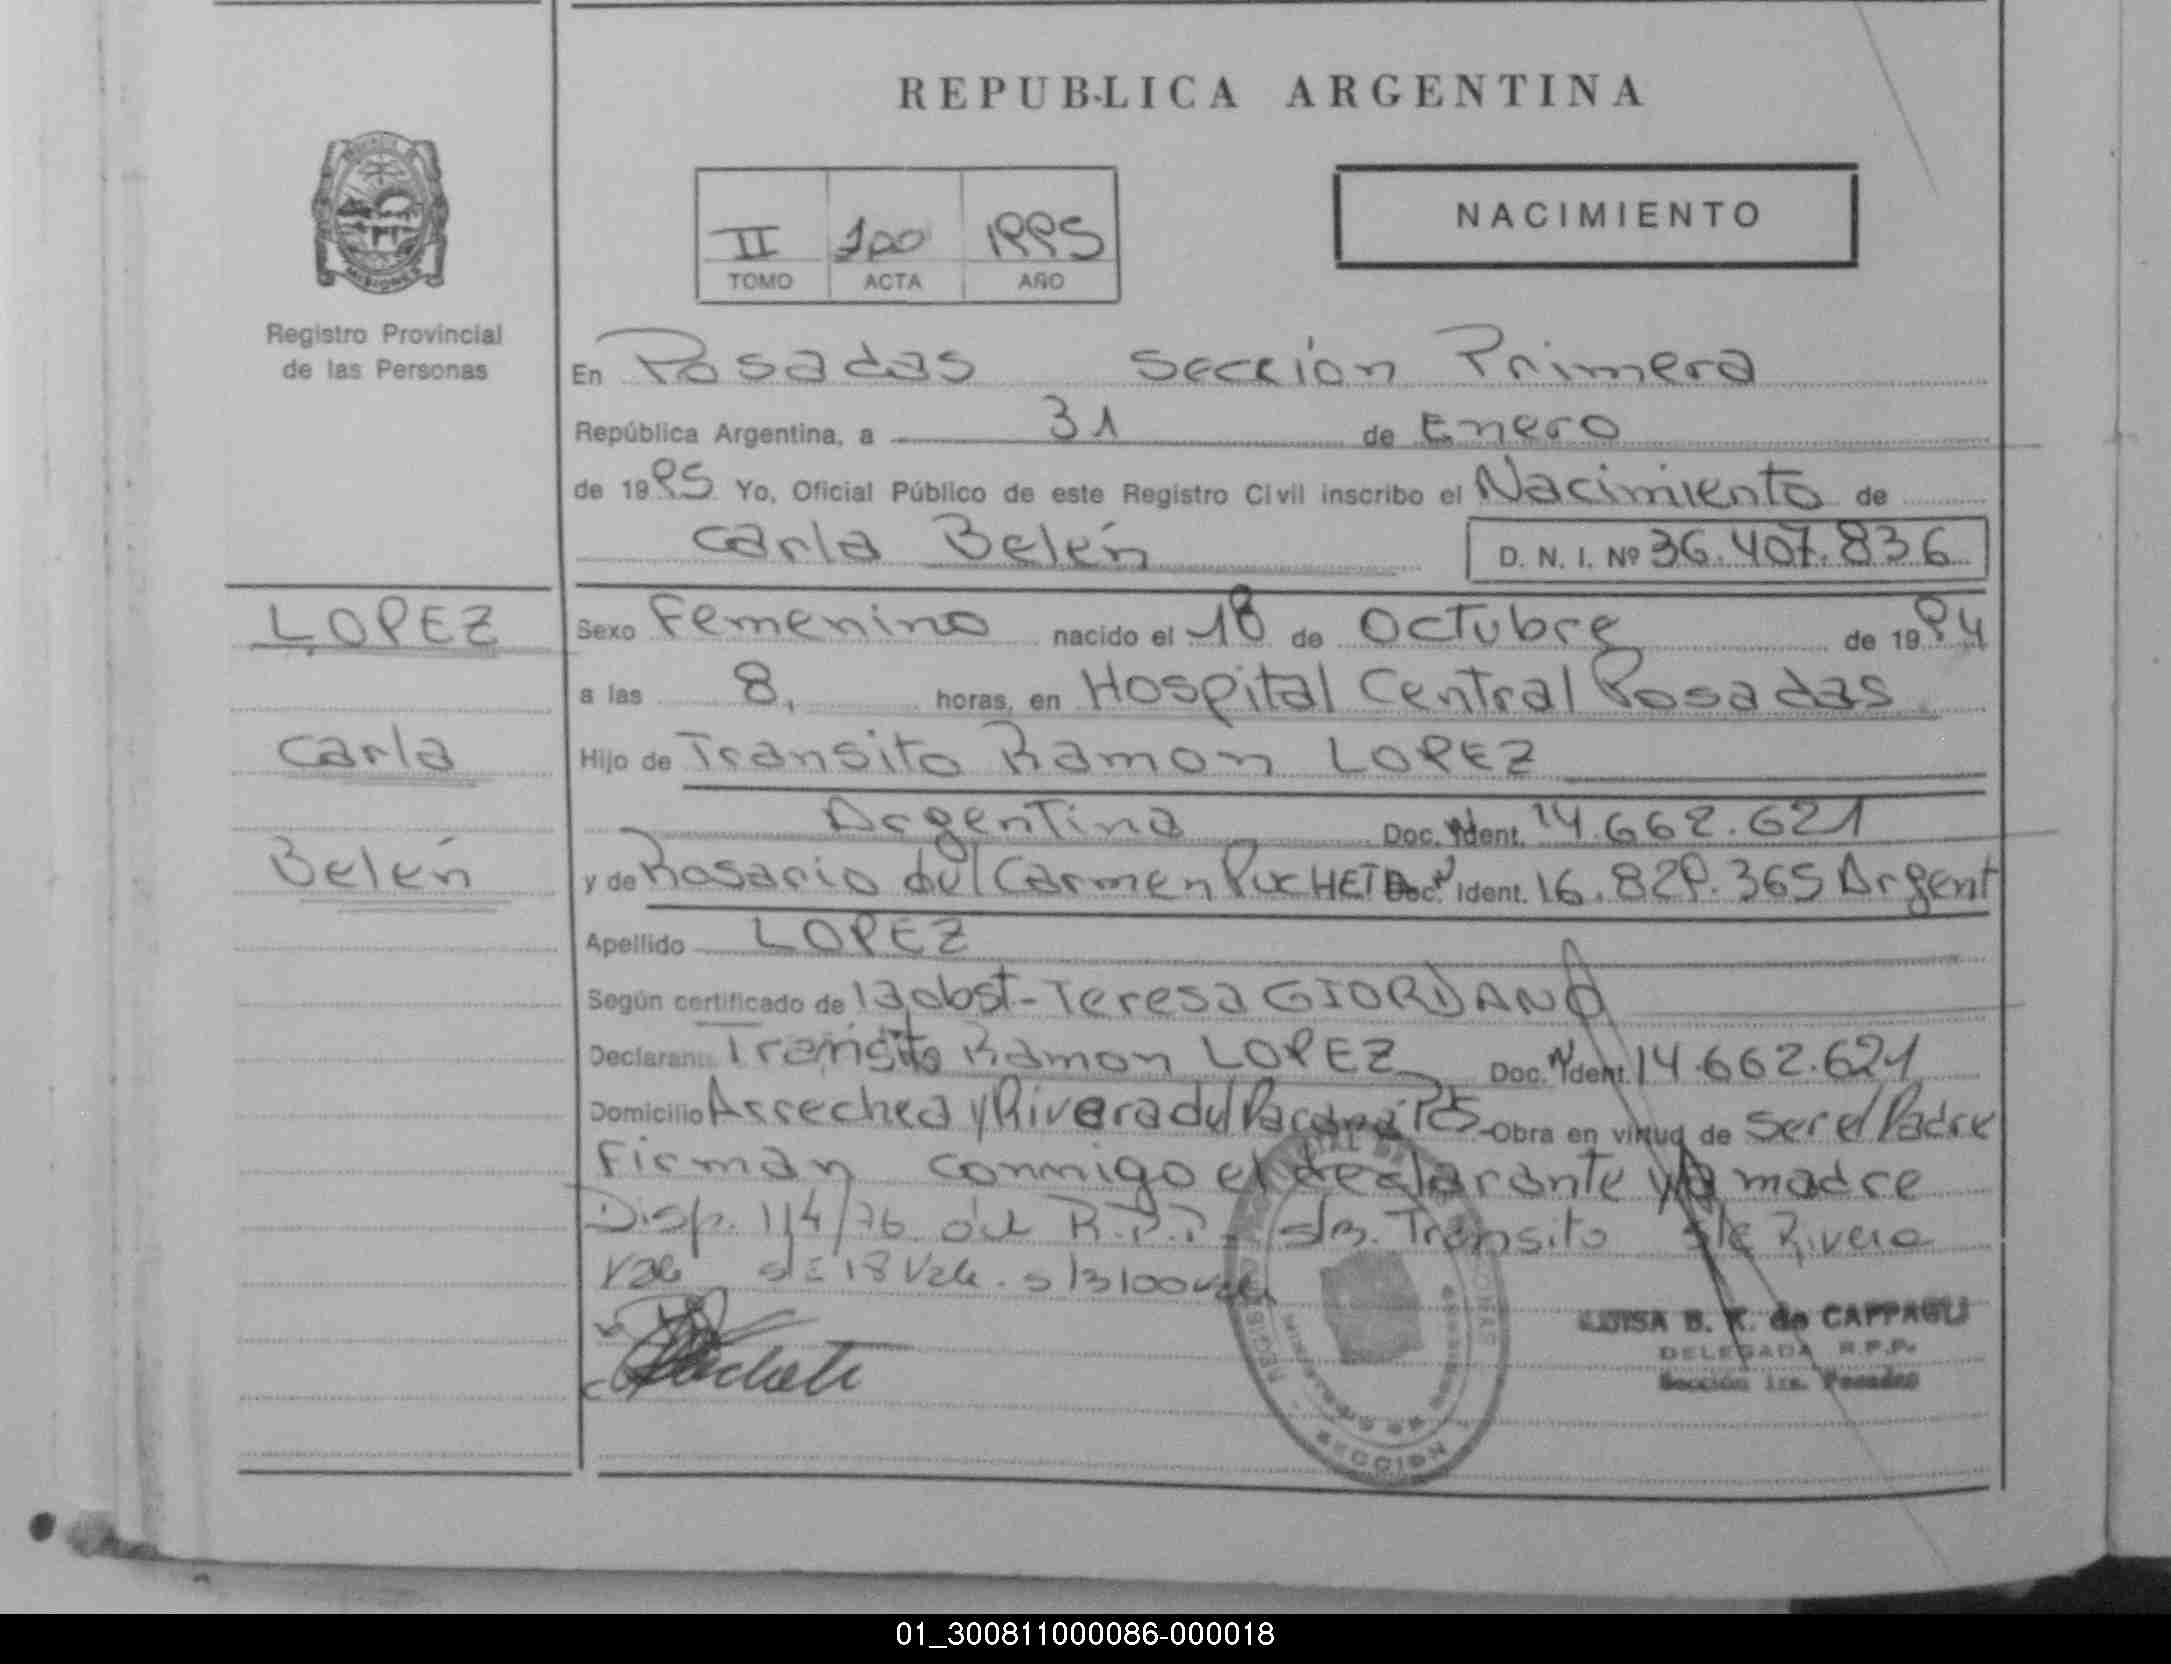 REPUBLICA ARGENTINA
MISIONES
Registro Provincial
de las Personas
II 100 1995
TOMO ACTA AÑO
NACIMIENTO
En Posadas Sección Primera
República Argentina, a 31 de Enero
de 1995 Yo, Oficial Público de este Registro Civil inscribo el Nacimiento de
Carla Belén D. N. I. Nº 36.407.836
LOPEZ
Carla
Belén
Sexo Femenino nacido el 18 de Octubre de 1994
a las 8, horas, en Hospital Central Posadas
Hijo de Transito Ramon LOPEZ
Argentina Doc. Ident. 14.662.621
y de Rosario del Carmen PUCHETA Doc. Ident. 16.829.365 Argent
Apellido LOPEZ
Según certificado de la obst- Teresa GIORDANO
Declarante Transito Ramon LOPEZ Doc. Ident. 14.662.621
Domicilio Arrechea y Rivera del Paraná Pos Obra en virtud de ser el Padre
Firman conmigo el declarante y la madre
Disp. 114/76 del R.P.P. s/b. Transito s/e Rivera
Vale s/e 18 Vale. s/b 100 vale
LUISA B. K. de CAPPAGLI
DELEGADA R.P.P.
Sección 1ra. Posadas
SECCION
01_300811000086-000018